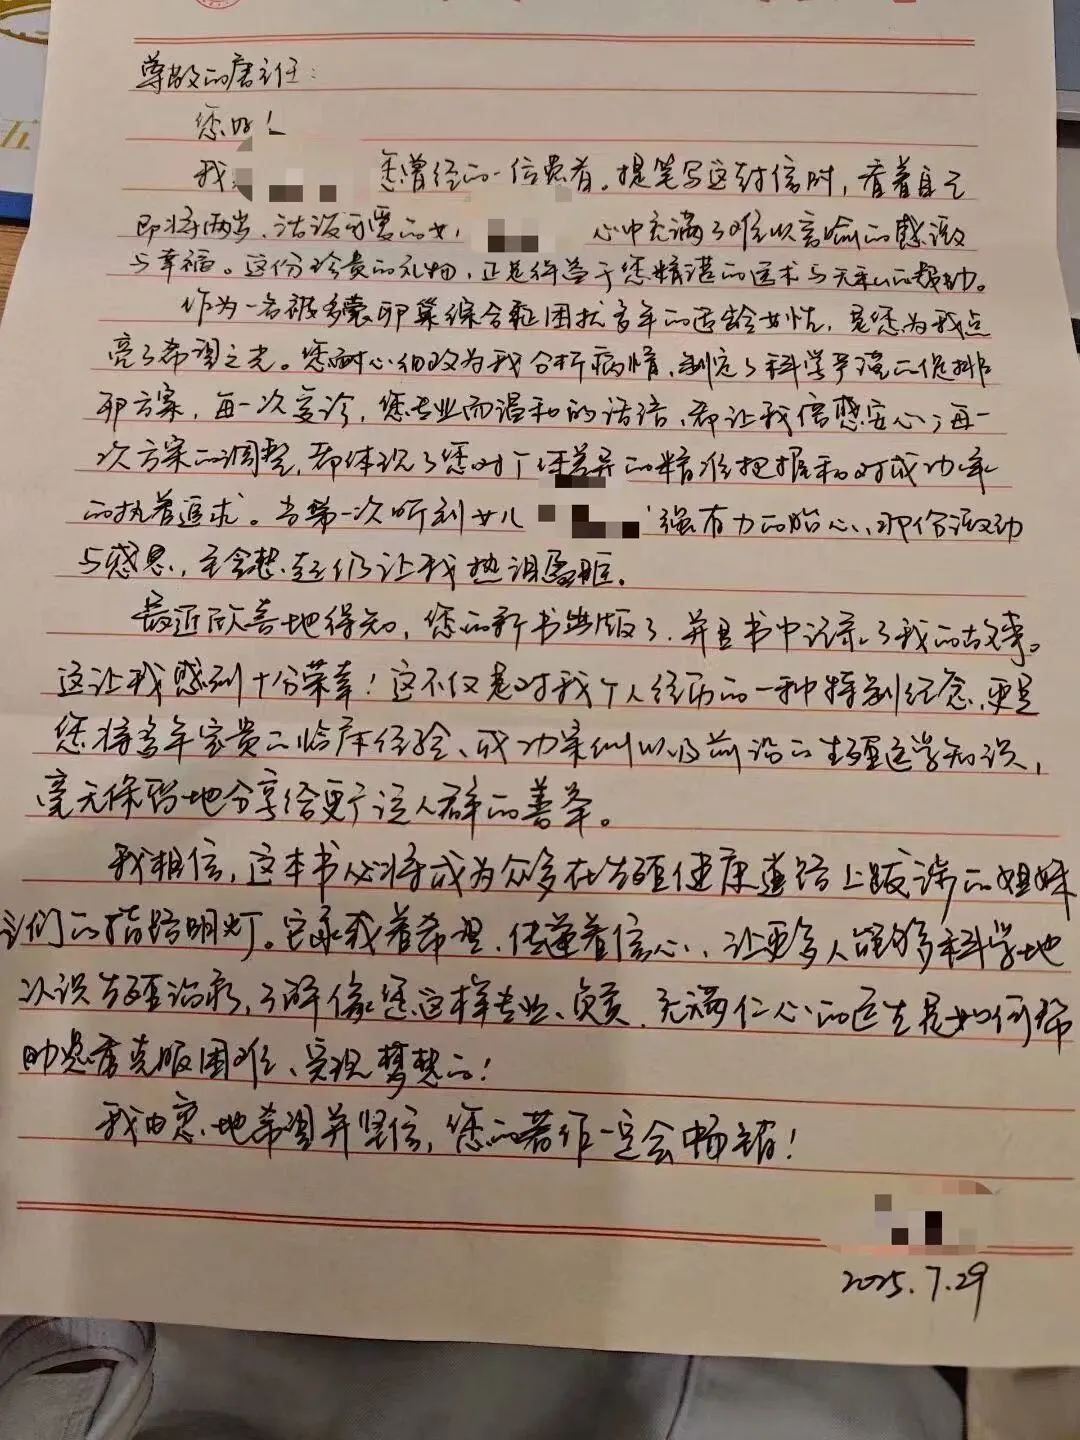 尊敬的唐主任：
您好！
我 您曾经的一位患者。提笔写这封信时，看着自己
即将两岁、活泼可爱的女 心中充满了难以言喻的感激
与幸福。这份珍贵的礼物，正是得益于您精湛的医术与无私的帮助。
作为一名被多囊卵巢综合症困扰多年的适龄女性，是您为我点
亮了希望之光。您耐心细致为我分析病情，制定了科学严谨的促排
卵方案，每一次复诊，您专业而温和的话语，都让我倍感安心；每一
次方案的调整，都体现了您对个体差异的精准把握和对成功率
的执着追求。当第一次听到女儿 强有力的胎心，那份激动
与感恩，至今想起仍让我热泪盈眶。
最近欣喜地得知，您的新书出版了，并且书中记录了我的故事。
这让我感到十分荣幸！这不仅是对我个人经历的一种特别纪念，更是
您将多年宝贵的临床经验、成功案例以及前沿的生殖医学知识，
毫无保留地分享给更广泛人群的善举。
我相信，这本书必将成为众多在生殖健康道路上跋涉的姐妹
们的指路明灯。它承载着希望，传递着信心，让更多人能够科学地
认识生殖治疗，了解像您这样专业、负责、充满仁心的医生是如何帮
助患者克服困难、实现梦想的！
我由衷地希望并坚信，您的著作一定会畅销！
2025.7.29
五